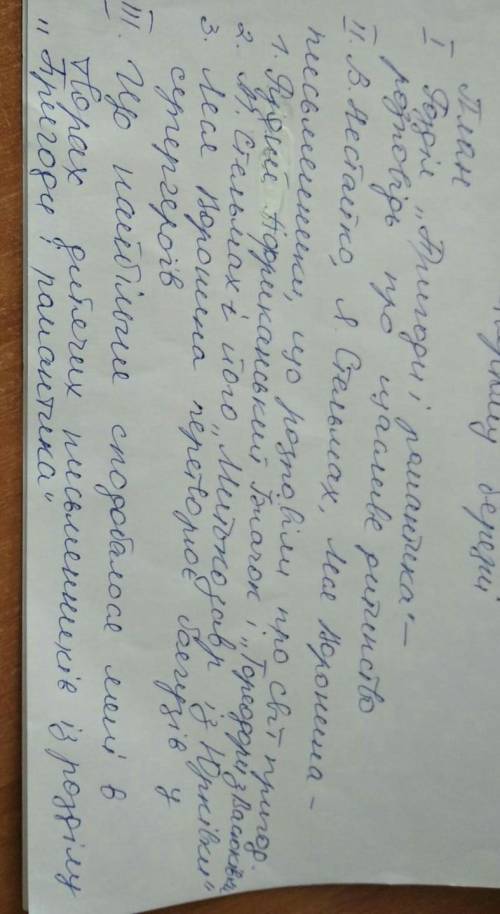 План
I Розділ „Пригоди і романтика" –
розповідь про щасливе дитинство
II. В. Нестайко, Я. Стельмах, Леся Воронина –
письменники, що розповіли про світ пригод.
1. Африканський і „Тореадори з Васюківки"
2. Я. Стельмах і його „Митькозавр із Юрківки"
3. Леся Воронина перетворює боягузів у
супергероїв
III. Що найбільше сподобалося мені в
творах дитячих письменників із розділу
„Пригоди і романтика"